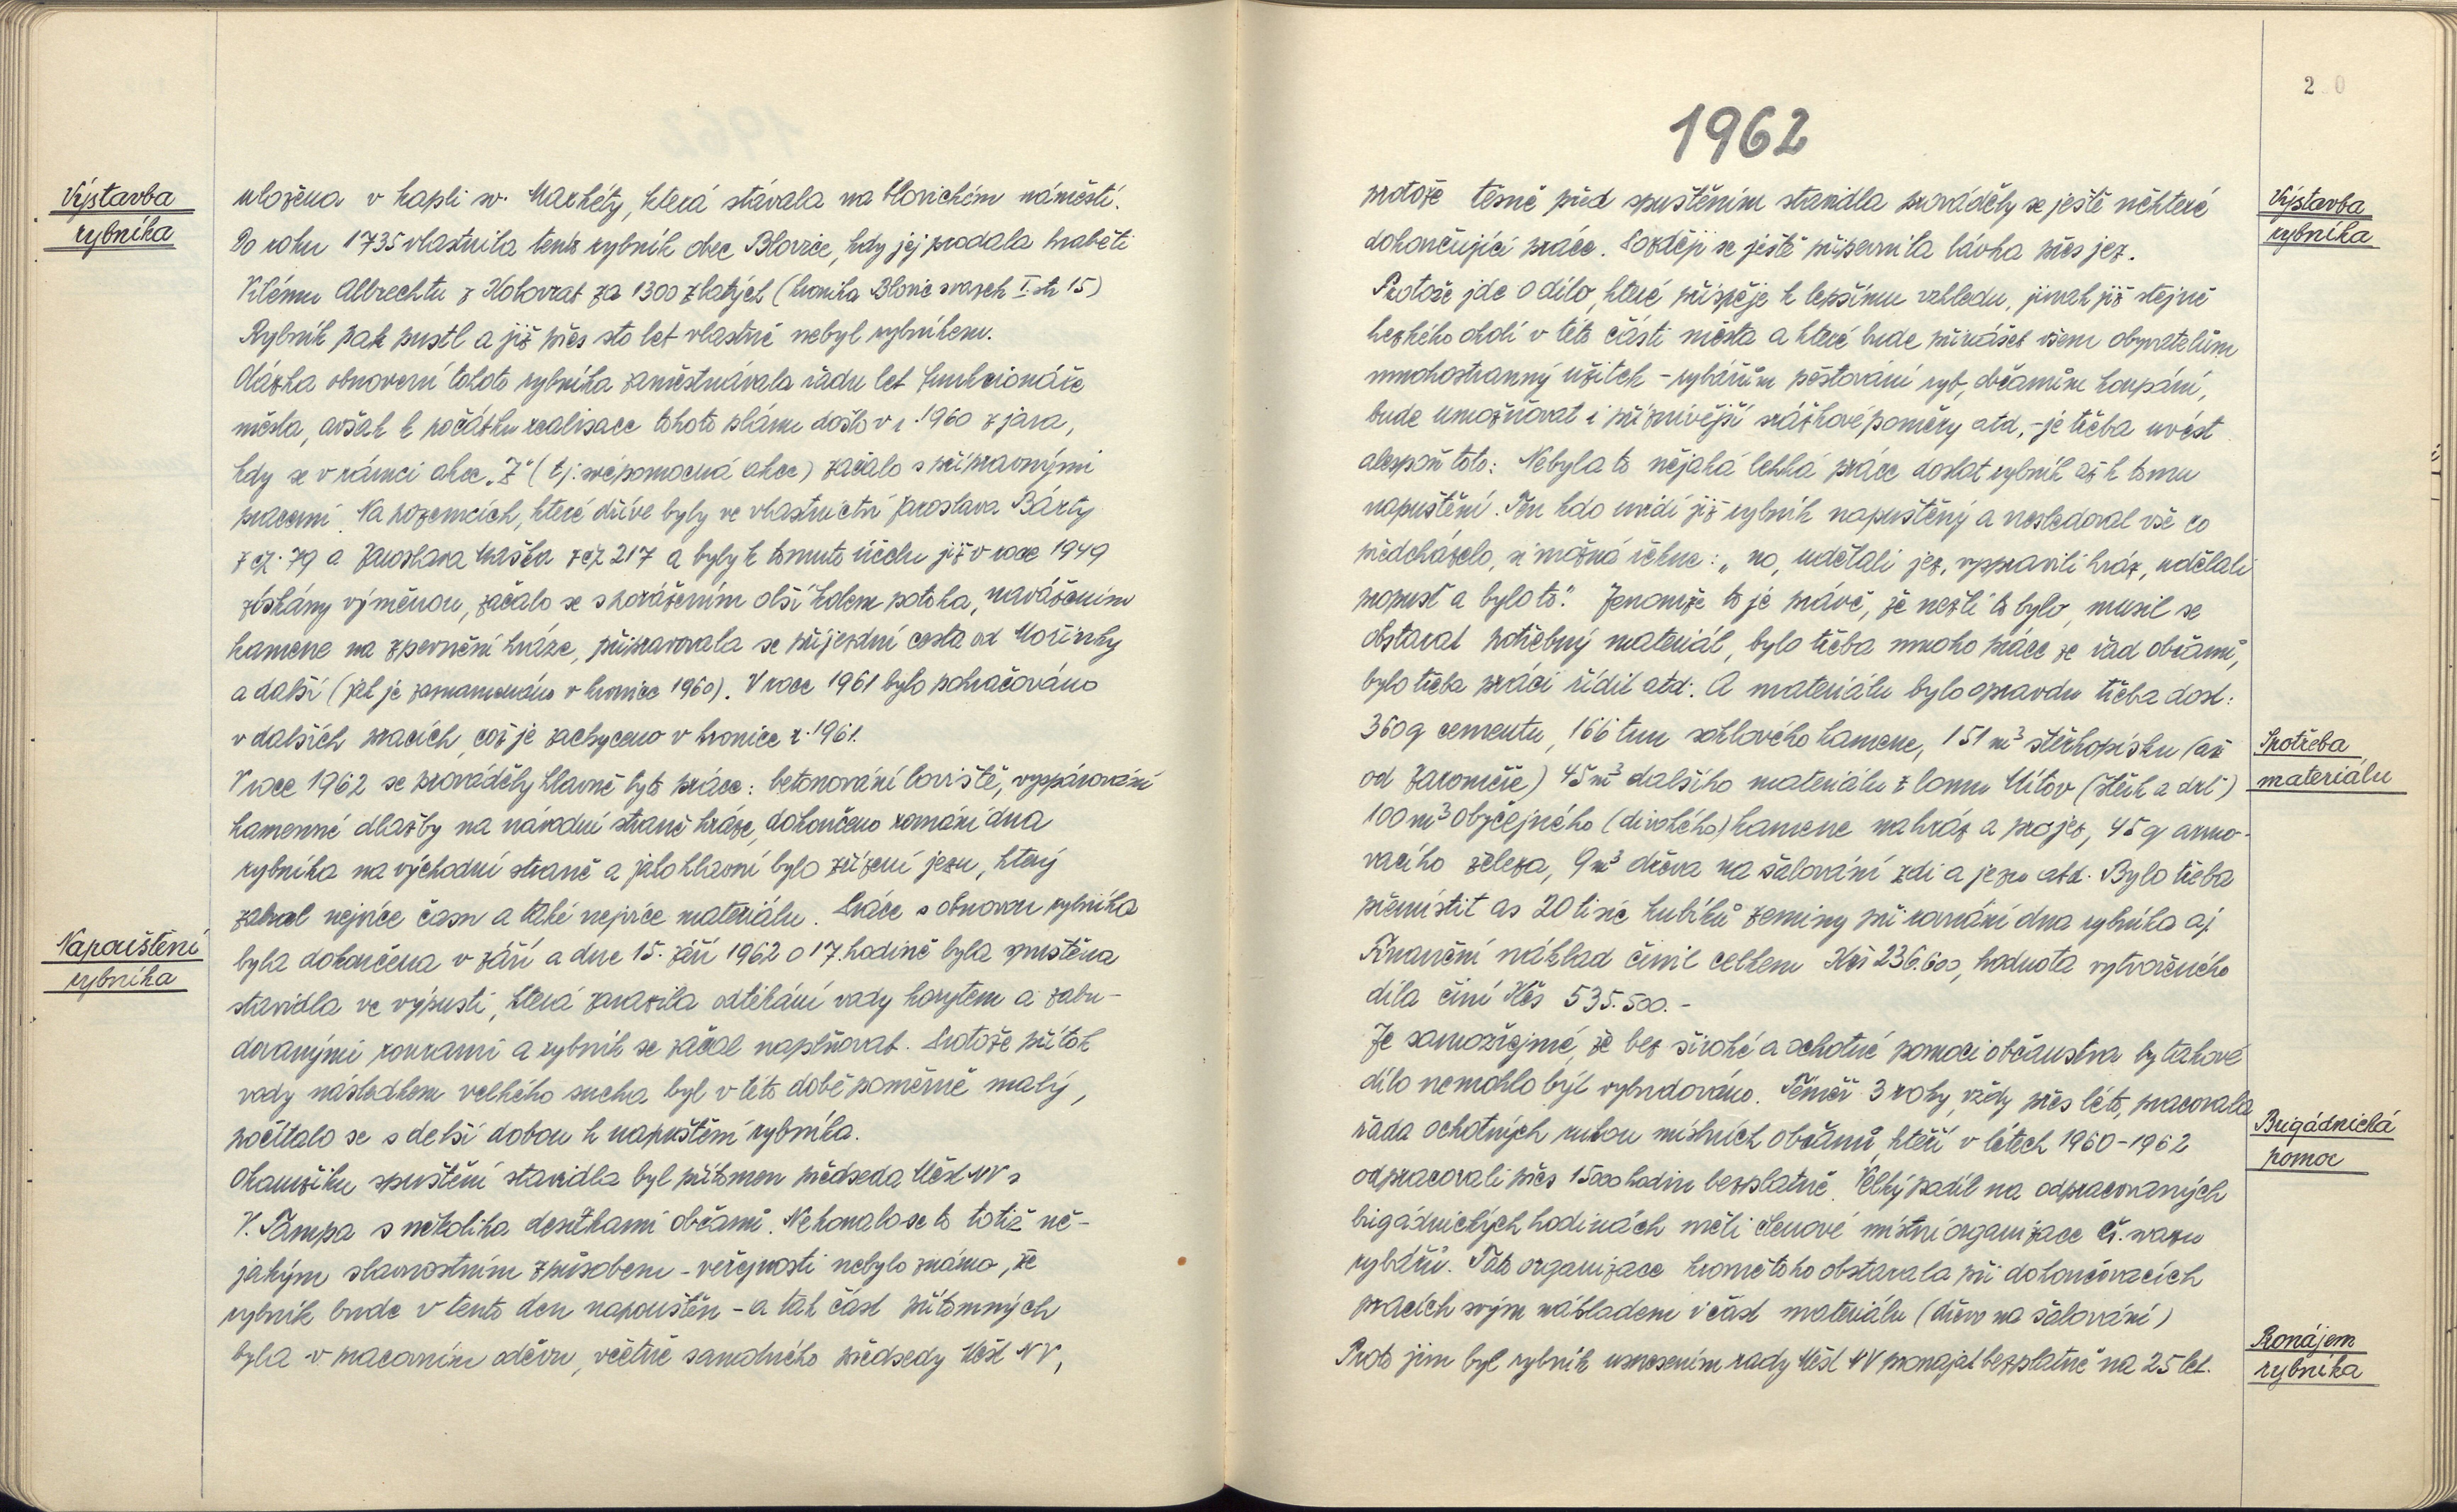 Výstavba
rybníka
uložena v kapli sv. Markéty, která stávala na blovickém náměstí.
Do roku 1735 vlastnila tento rybník obec Blovice, kdy jej prodala hraběti
Vilému Albrechtu z Kolovrat za 1300 zlatých (kronika Blovic svazek I. str 15)
Rybník pak pustl a již přes sto let vlastně nebyl rybníkem.
Otázka obnovení tohoto rybníka zaměstnávala řadu let funkcionáře
města, avšak k počátku realisace tohoto plánu došlo v r. 1960 z jara,
kdy se v rámci akce „Z" (tj. svépomocná akce) začalo s přípravnými
pracemi. Na pozemcích, které dříve byly ve vlastnictví Jaroslava Bárty
z čp. 79 a Jaroslava Maška z čp 217 a byly k tomuto účelu již v roce 1949
získány výměnou, začalo se s porážením olší kolem potoka, navážením
kamene na zpevnění hráze, připravovala se příjezdní cesta od Mořinky
a další (jak je zaznamenáno v kronice 1960). V roce 1961 bylo pokračováno
v dalších pracích, což je zachyceno v kronice r. 1961.
V roce 1962 se prováděly hlavně tyto práce: betonování loviště, vyspárování
kamenné dlažby na návodní straně hráze, dokončeno rovnání dna
rybníka na východní straně a jako hlavní bylo zřízení jezu, který
zabral nejvíce času a také nejvíce materiálu. Práce s obnovou rybníka
Napouštění
rybníka
byla dokončena v září a dne 15. září 1962 o 17 hodině byla spuštěna
stavidla ve výpusti, která zarazila odtékání vody korytem a zabu-
dovanými rourami a rybník se začal naplňovat. Protože přítok
vody následkem velkého sucha byl v této době poměrně malý,
počítalo se s delší dobou k napuštění rybníka.
Okamžiku spuštění stavidla byl přítomen předseda Měst NV s
V. Tampa s několika desítkami občanů. Nekonalo se to totiž ně-
jakým slavnostním způsobem - veřejnosti nebylo známo, že
rybník bude v tento den napouštěn - a tak část přítomných
byla v pracovním oděvu, včetně samotného předsedy Měst NV,
2 0
1962
Výstavba
rybníka
protože těsně před spuštěním stavidla prováděly se ještě některé
dokončující práce. Později se ještě připevnila lávka přes jez.
Protože jde o dílo, které přispěje k lepšímu vzhledu, jinak již stejně
hezkého okolí v této části města a které bude přinášet všem obyvatelům
mnohostranný užitek - rybářům pěstování ryb, občanům koupání,
bude umožňovat i příznivější srážkové poměry atd, - je třeba uvést
alespoň toto: Nebyla to nějaká lehká práce dostat rybník až k tomu
napuštění. Ten kdo uvidí již rybník napuštěný a nesledoval vše co
předcházelo, si možná řekne: „no, udělali jez, vypravili hráz, udělali
propust a bylo to." Jenomže to je právě, že nežli to bylo, musil se
obstarat potřebný materiál, bylo třeba mnoho práce ze řad občanů,
bylo třeba práci řídit atd. A materiálu bylo opravdu třeba dost:
Spotřeba
materiálu
360 q cementu, 166 tun soklového kamene, 151 m³ štěrkopísku (až
od Jaroměře) 45 m³ dalšího materiálu z lomu Mítov (štěrk a drť)
100 m³ obyčejného (divokého) kamene na hráz a pro jez, 45 q armo-
vacího železa, 9 m³ dřeva na šalování zdi a jezu atd. Bylo třeba
přemístit as 20 tisíc kubíků zeminy při rovnání dna rybníka aj
Finanční náklad činil celkem Kčs 236.600, hodnota vytvořeného
díla činí Kčs 535.500.-
Je samozřejmé, že bez široké a ochotné pomoci občanstva by takové
dílo nemohlo být vybudováno. Téměř 3 roky, vždy přes léto, pracovala
Brigádnická
pomoc
řada ochotných rukou místních občanů, kteří v létech 1960-1962
odpracovali přes 15000 hodin bezplatně. Velký podíl na odpracovaných
brigádnických hodinách měli členové místní organizace čs. svazu
rybářů. Tato organizace kromě toho obstarala při dokončovacích
pracích svým nákladem i část materiálu (dřevo na šalování)
Pronájem
rybníka
Proto jim byl rybník usnesením rady Měst NV pronajat bezplatně na 25 let.